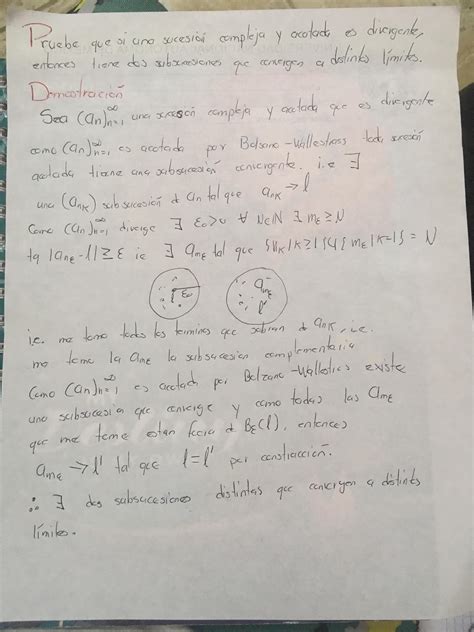 Pruebe que si una sucesión compleja y acotada es divergente,
entonces tiene dos subsucesiones que convergen a distintos límites.
Demostración
Sea (an)∞n=1 una sucesión compleja y acotada que es divergente
como (an)∞n=1 es acotada por Bolzano-Wallestrass toda sucesión
acotada tiene una subsucesión convergente. i.e ∃
una (ank) subsucesión d an tal que ank → l
Como (an)∞n=1 diverge ∃ ε0>0 ∀ N∈ℕ ∃ mε≥N
tq |amε - l| ≥ ε ie ∃ amε tal que {nk|k≥1}∪{mε|k=1} = ℕ
l ε0 amε l'
i.e. me tomo todos los terminos que sobran d ank, i.e.
me tome la amε la subsucesion complementaria
Como (an)∞n=1 es acotada por Bolzano-Wallestras existe
una subsucesión que converge y como todas las amε
que me tome estan fuera d Bε(l), entonces
amε → l' tal que l = l' por construcción.
∴ ∃ dos subsucesiones distintas que convergen a distintos
límites.